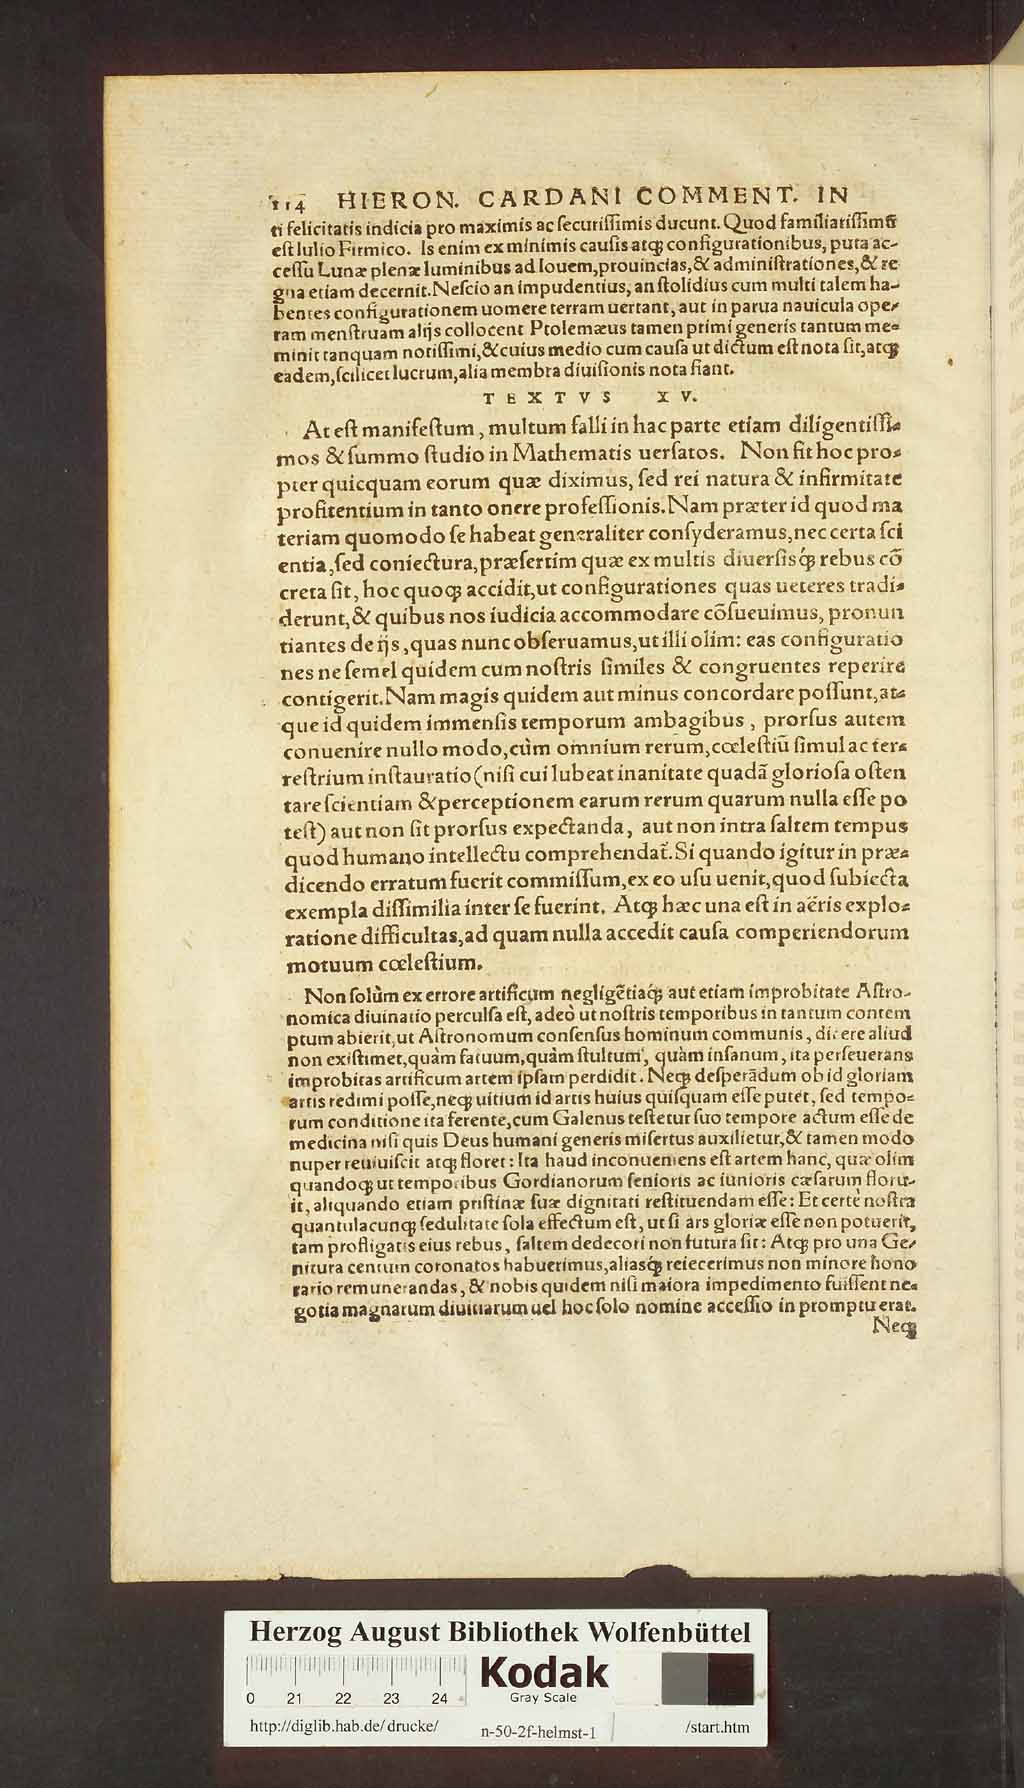 114 HIERON. CARDANI COMMENT. IN
ti felicitatis indicia pro maximis ac ſecuriſſimis ducunt. Quod familiariſſimū
eſt Iulio Firmico. Is enim ex minimis cauſis atq; configurationibus, puta ac-
ceſſu Lunæ plenæ luminibus ad Iouem, prouincias, & adminiſtrationes, & re
gna etiam decernit. Neſcio an impudentius, an ſtolidius cum multi talem ha-
bentes configurationem uomere terram uertant, aut in parua nauicula ope-
ram menſtruam alijs collocent Ptolemæus tamen primi generis tantum me-
minit tanquam notiſſimi, & cuius medio cum cauſa ut dictum eſt nota ſit, atq;
eadem, ſcilicet lucrum, alia membra diuiſionis nota fiant.
TEXTVS XV.
At eſt manifeſtum, multum falli in hac parte etiam diligentiſſi-
mos & ſummo ſtudio in Mathematis uerſatos. Non fit hoc pro-
pter quicquam eorum quæ diximus, ſed rei natura & infirmitate
profitentium in tanto onere profeſſionis. Nam præter id quod ma
teriam quomodo ſe habeat generaliter conſyderamus, nec certa ſci
entia, ſed coniectura, præſertim quæ ex multis diuerſisq́; rebus cō
creta ſit, hoc quoq; accidit, ut configurationes quas ueteres tradi-
derunt, & quibus nos iudicia accommodare cōſueuimus, pronun
tiantes de ijs, quas nunc obſeruamus, ut illi olim: eas configuratio
nes ne ſemel quidem cum noſtris ſimiles & congruentes reperire
contigerit. Nam magis quidem aut minus concordare poſſunt, at-
que id quidem immenſis temporum ambagibus, prorſus autem
conuenire nullo modo, cùm omnium rerum, cœleſtiū ſimul ac ter-
reſtrium inſtauratio (niſi cui lubeat inanitate quadā glorioſa oſten
tare ſcientiam & perceptionem earum rerum quarum nulla eſſe po
teſt) aut non ſit prorſus expectanda, aut non intra ſaltem tempus
quod humano intellectu comprehendat̃. Si quando igitur in præ-
dicendo erratum fuerit commiſſum, ex eo uſu uenit, quod ſubiecta
exempla diſſimilia inter ſe fuerint. Atq; hæc una eſt in aëris explo-
ratione difficultas, ad quam nulla accedit cauſa comperiendorum
motuum cœleſtium.
Non ſolùm ex errore artificum negligētiaq́; aut etiam improbitate Aſtro-
nomica diuinatio perculſa eſt, adeò ut noſtris temporibus in tantum contem
ptum abierit, ut Aſtronomum conſenſus hominum communis, dicere aliud
non exiſtimet, quàm fatuum, quàm ſtultum, quàm inſanum, ita perſeuerans
improbitas artificum artem ipſam perdidit. Neq; deſperādum ob id gloriam
artis redimi poſſe, neq; uitium id artis huius quiſquam eſſe putet, ſed tempo-
rum conditione ita ferente, cum Galenus teſtetur ſuo tempore actum eſſe de
medicina niſi quis Deus humani generis miſertus auxilietur, & tamen modo
nuper reuiuiſcit atq; floret: Ita haud inconueniens eſt artem hanc, quæ olim
quandoq; ut temporibus Gordianorum ſenioris ac iunioris cæſarum floru-
it, aliquando etiam priſtinæ ſuæ dignitati reſtituendam eſſe: Et certè noſtra
quantulacunq; ſedulitate ſola effectum eſt, ut ſi ars gloriæ eſſe non potuerit,
tam profligatis eius rebus, ſaltem dedecori non futura ſit: Atq; pro una Ge-
nitura centum coronatos habuerimus, aliasq́; reiecerimus non minore hono
rario remunerandas, & nobis quidem niſi maiora impedimento fuiſſent ne-
gotia magnarum diuitiarum uel hoc ſolo nomine acceſſio in promptu erat.
Neq;
Herzog August Bibliothek Wolfenbüttel
Kodak
Gray Scale
0 21 22 23 24
http://diglib.hab.de/drucke/ n-50-2f-helmst-1 /start.htm